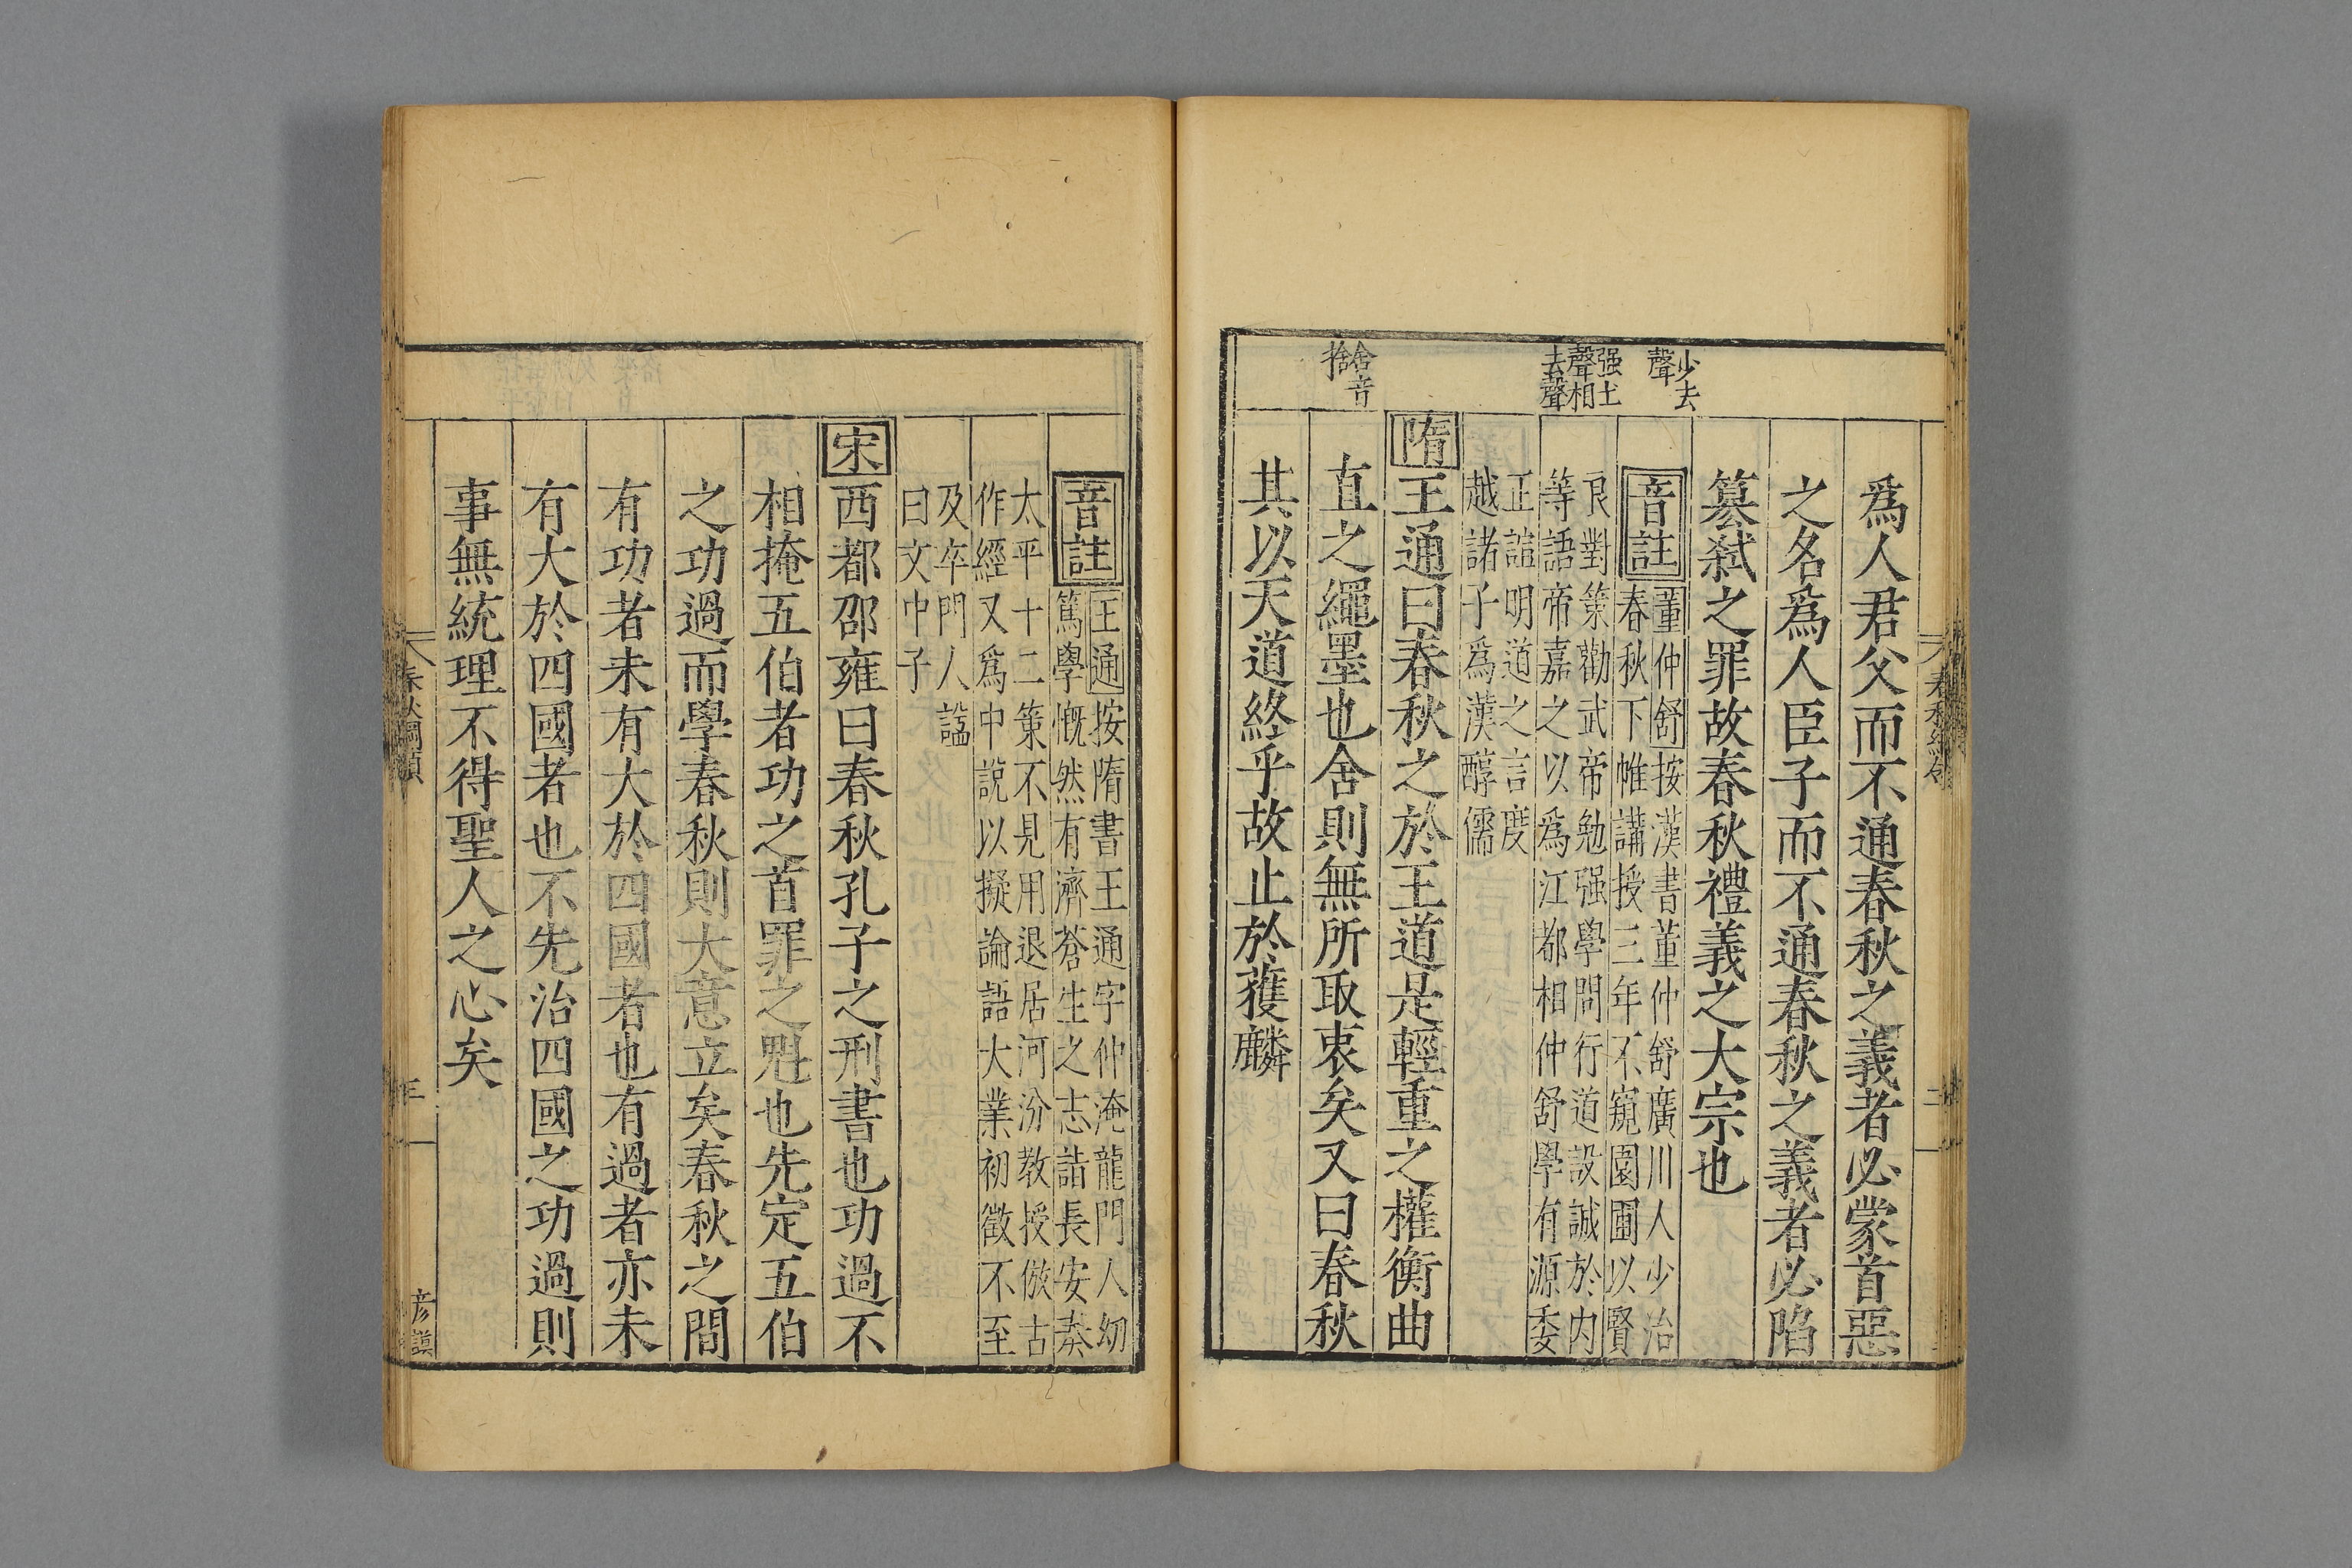 少去
聲
强上
聲相
去聲
舍音
捨
爲人君父而不通春秋之義者必蒙首惡
之名爲人臣子而不通春秋之義者必陷
簒弑之罪故春秋禮義之大宗也
音註
董仲舒按漢書董仲舒廣川人少治
春秋下帷講授三年不窺園圃以賢
良對策勸武帝勉强學問行道設誠於内
等語帝嘉之以爲江都相仲舒學有源委
正誼明道之言度
越諸子爲漢醇儒
隋王通曰春秋之於王道是輕重之權衡曲
直之繩墨也舍則無所取衷矣又曰春秋
其以天道終乎故止於獲麟
音註
王通按隋書王通字仲淹龍門人幼
篤學慨然有濟蒼生之志詣長安奏
太平十二策不見用退居河汾教授倣古
作經又爲中說以擬論語大業初徵不至
及卒門人諡
曰文中子
宋西都邵雍曰春秋孔子之刑書也功過不
相掩五伯者功之首罪之魁也先定五伯
之功過而學春秋則大意立矣春秋之間
有功者未有大於四國者也有過者亦未
有大於四國者也不先治四國之功過則
事無統理不得聖人之心矣
春秋綱領
三
彦謨